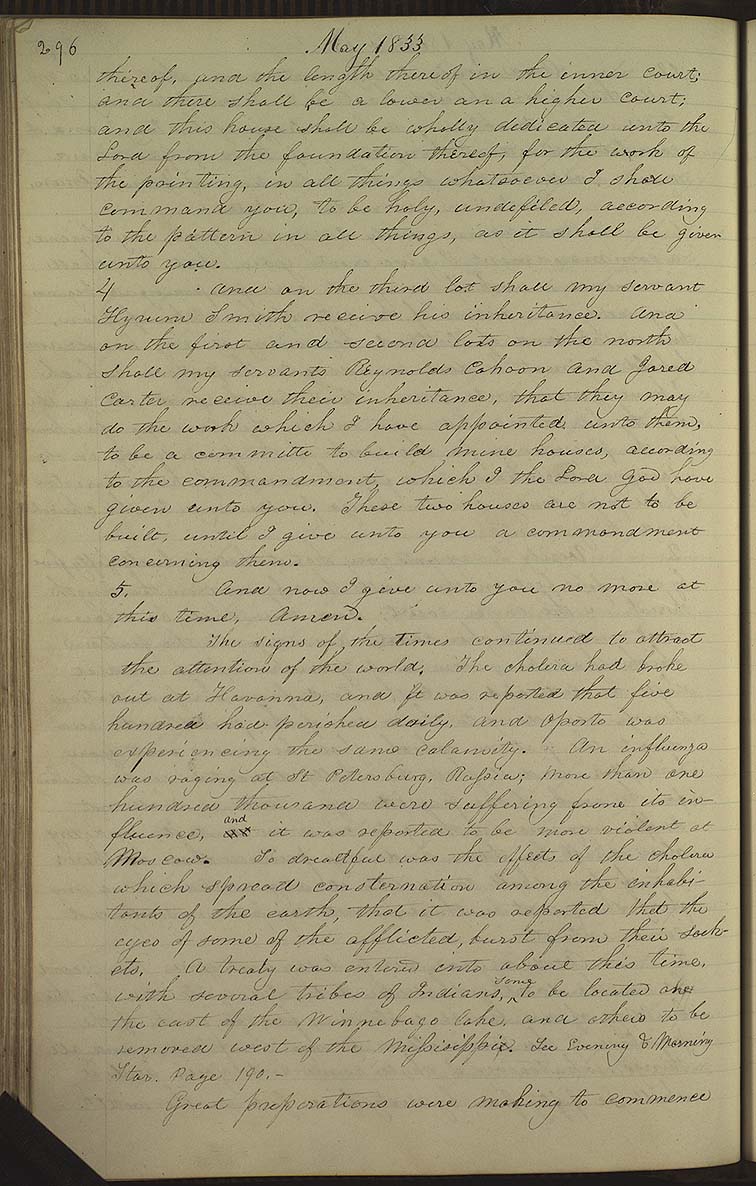 296 May 1833
thereof, and the length thereof in the inner court;
and there shall be a lower an a higher court;
and this house shall be wholly dedicated unto the
Lord from the foundation thereof, for the work of
the printing, in all things whatsoever I shall
command you, to be holy, undefiled, according
to the pattern in all things, as it shall be given
unto you.
4 And on the third lot shall my servant
Hyrum Smith receive his inheritance. And
on the first and second lots on the north
shall my servants Reynolds Cahoon and Jared
Carter receive their inheritance, that they may
do the work which I have appointed unto them,
to be a committe to build mine houses, according
to the commandment, which I the Lord God have
given unto you. These two houses are not to be
built, until I give unto you a commandment
concerning them.
5. And now I give unto you no more at
this time, Amen.
The signs of the times continued to attract
the attention of the world. The cholera had broke
out at Havanna, and it was reported that five
hundred had perished daily, and Oporto was
experiencing the same calamity. An influenza
was raging at St Petersburg, Russia; more than one
hundred thousand were suffering from its in-
fluence, and it was reported to be more violent at
Moscow. So dreadful was the effects of the cholera
which spread consternation among the inhabi-
tants of the earth, that it was reported that the
eyes of some of the afflicted, burst from their sock-
ets. A treaty was entered into about this time,
with several tribes of Indians, some to be located on
the east of the Winnebago lake, and others to be
removed west of the Missisippi. See Evening & Morning
Star. Page 190.-
Great preparations were making to commence